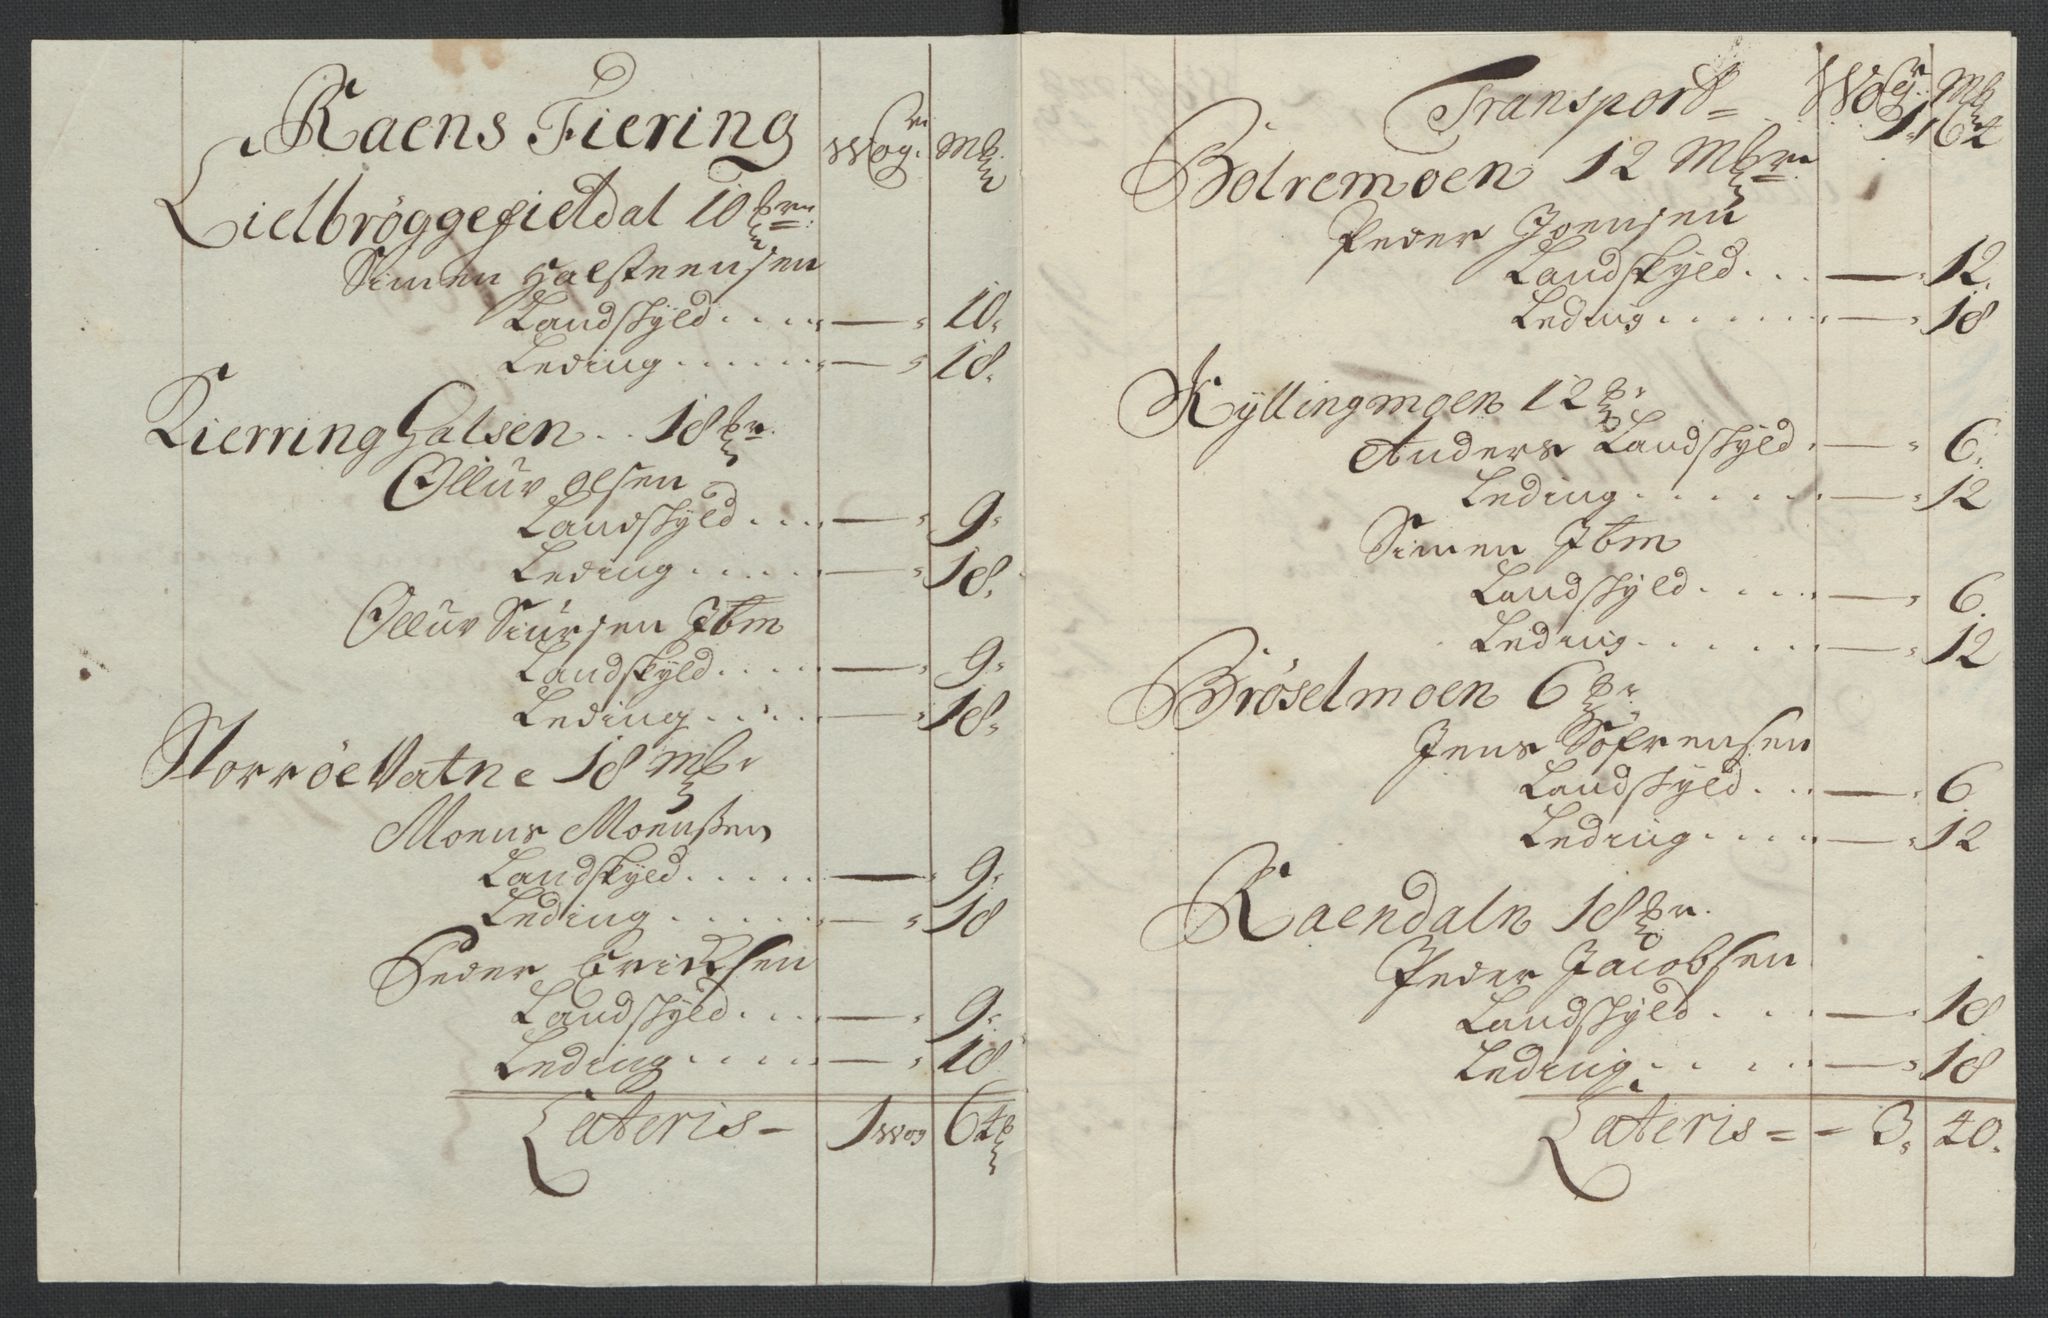 Raens Fiering Wog: Mk
Lielbröggefieldal 10
Simen Halsteensen
Landskyld . . . . — 10.
Leding . . . . . — 18.
Kierring Halsen . . 18
Olluv Olsen
Landskyld . . . — 9.
Leding . . . . — 18.
Olluv Siursen Ibm
Landskyld . . . . — 9.
Leding . . . . — 18.
StorröeVatne 18
Moens Moenssen
Landskyld . . . . . — 9.
Leding . . . . . — 18
Peder Ericksen
Landskyld . . . — 9.
Leding . . . . . — 18
Lateris – 1 Wog 64
Transport = Wog: Mk
1. 64
Bolremoen 12
Peder Joensen
Landskyld . . . — 12.
Leding . . . . . . — 18
Kyllingmoen 12
Anders Landskyld . — 6.
Leding . . . . . . — 12
Simen Ibm
Landskyld . . . . — 6.
Leding . . . . . — 12
Bröselmoen 6
Jens Söfrensen
Landskyld . . . — 6
Leding . . . . — 12
Raendaln 18
Peder Jacobsen
Landskyld . . . — 18
Leding . . . . — 18
Lateris = – 3. 40.